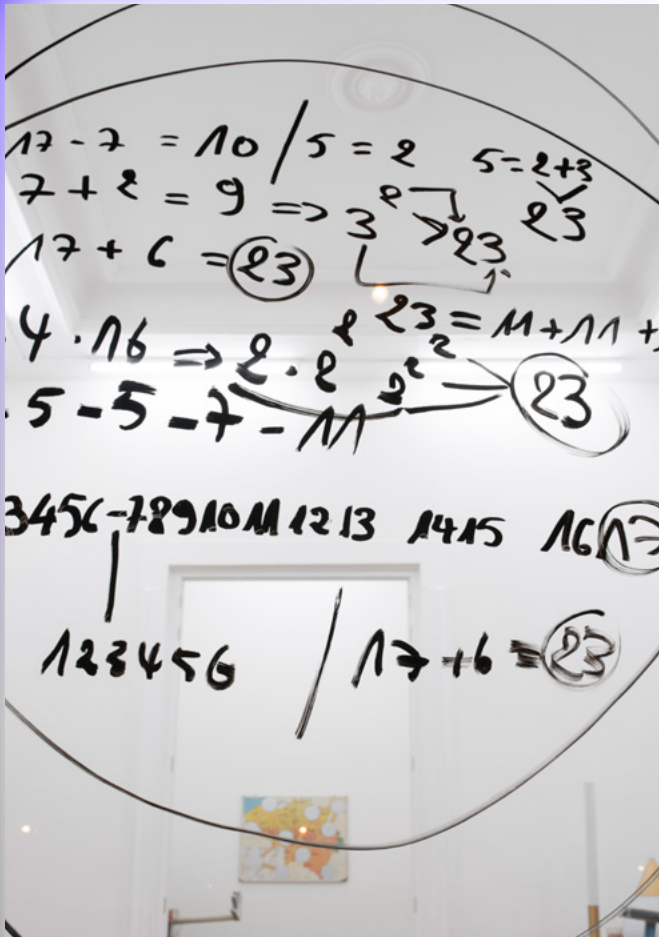 17 - 7 = 10 / 5 = 2 5 = 2+3
7 + 2 = 9 => 3² > 23 23
17 + 6 = 23
4 · 16 => 2 · 2² 2²² 23 = 11 + 11 +
· 5 - 5 - 7 - 11 23
3456-78910111213 1415 1617
123456 / 17 + 6 = 23